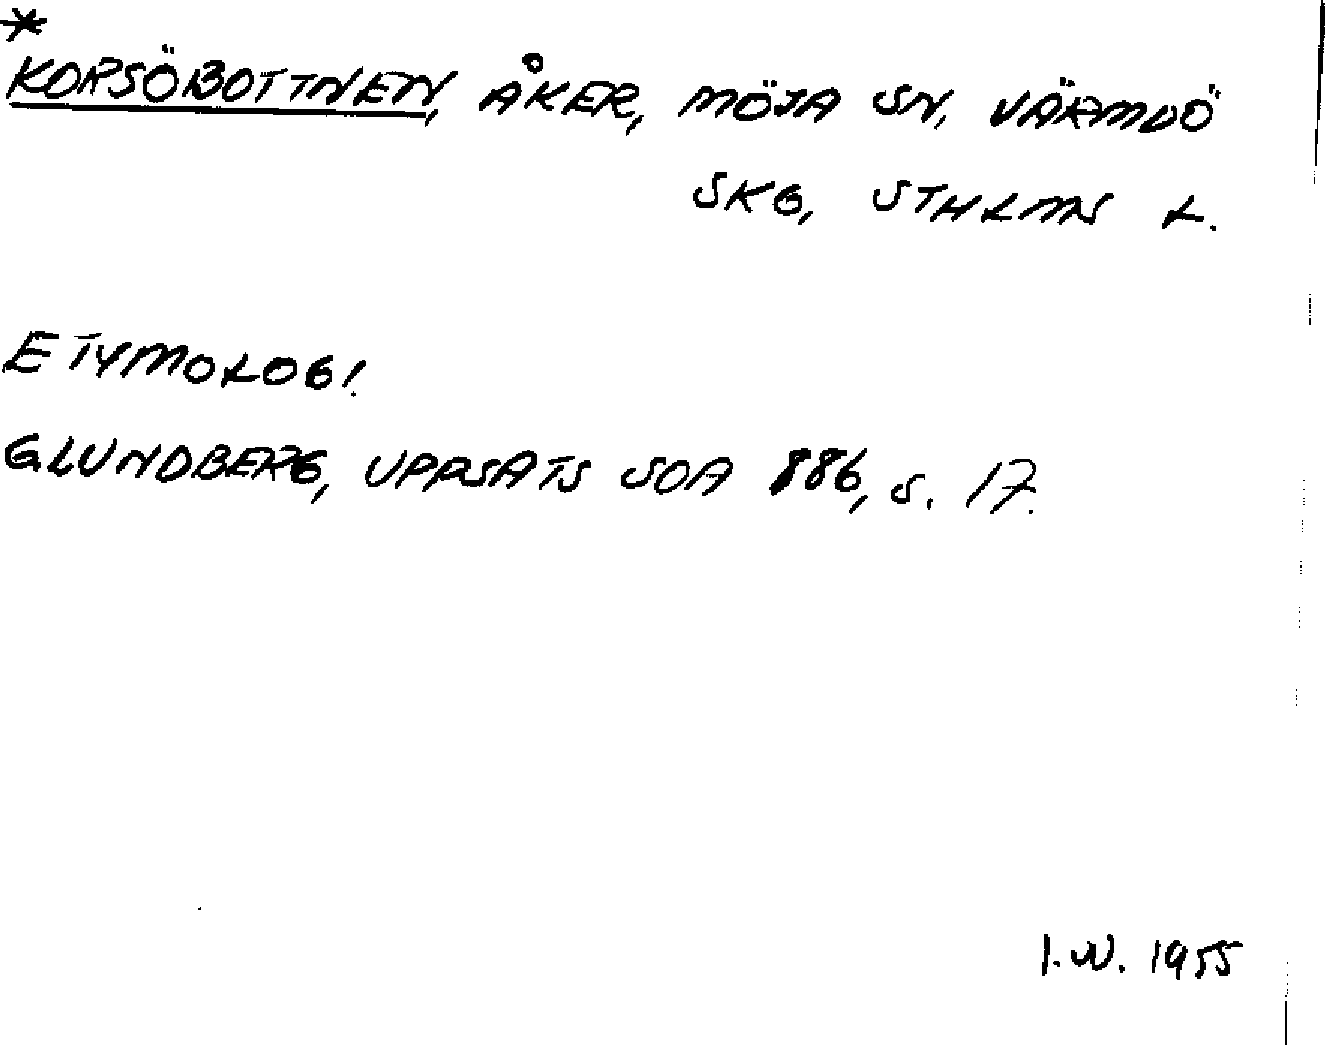 *
KORSÖBOTTNEN, ÅKER, MÖJA SN, VÄRMDÖ
SKG, STHLMS L.
ETYMOLOGI.
G LUNDBERG, UPPSATS SOA 886, S. 17.
I.W. 1955